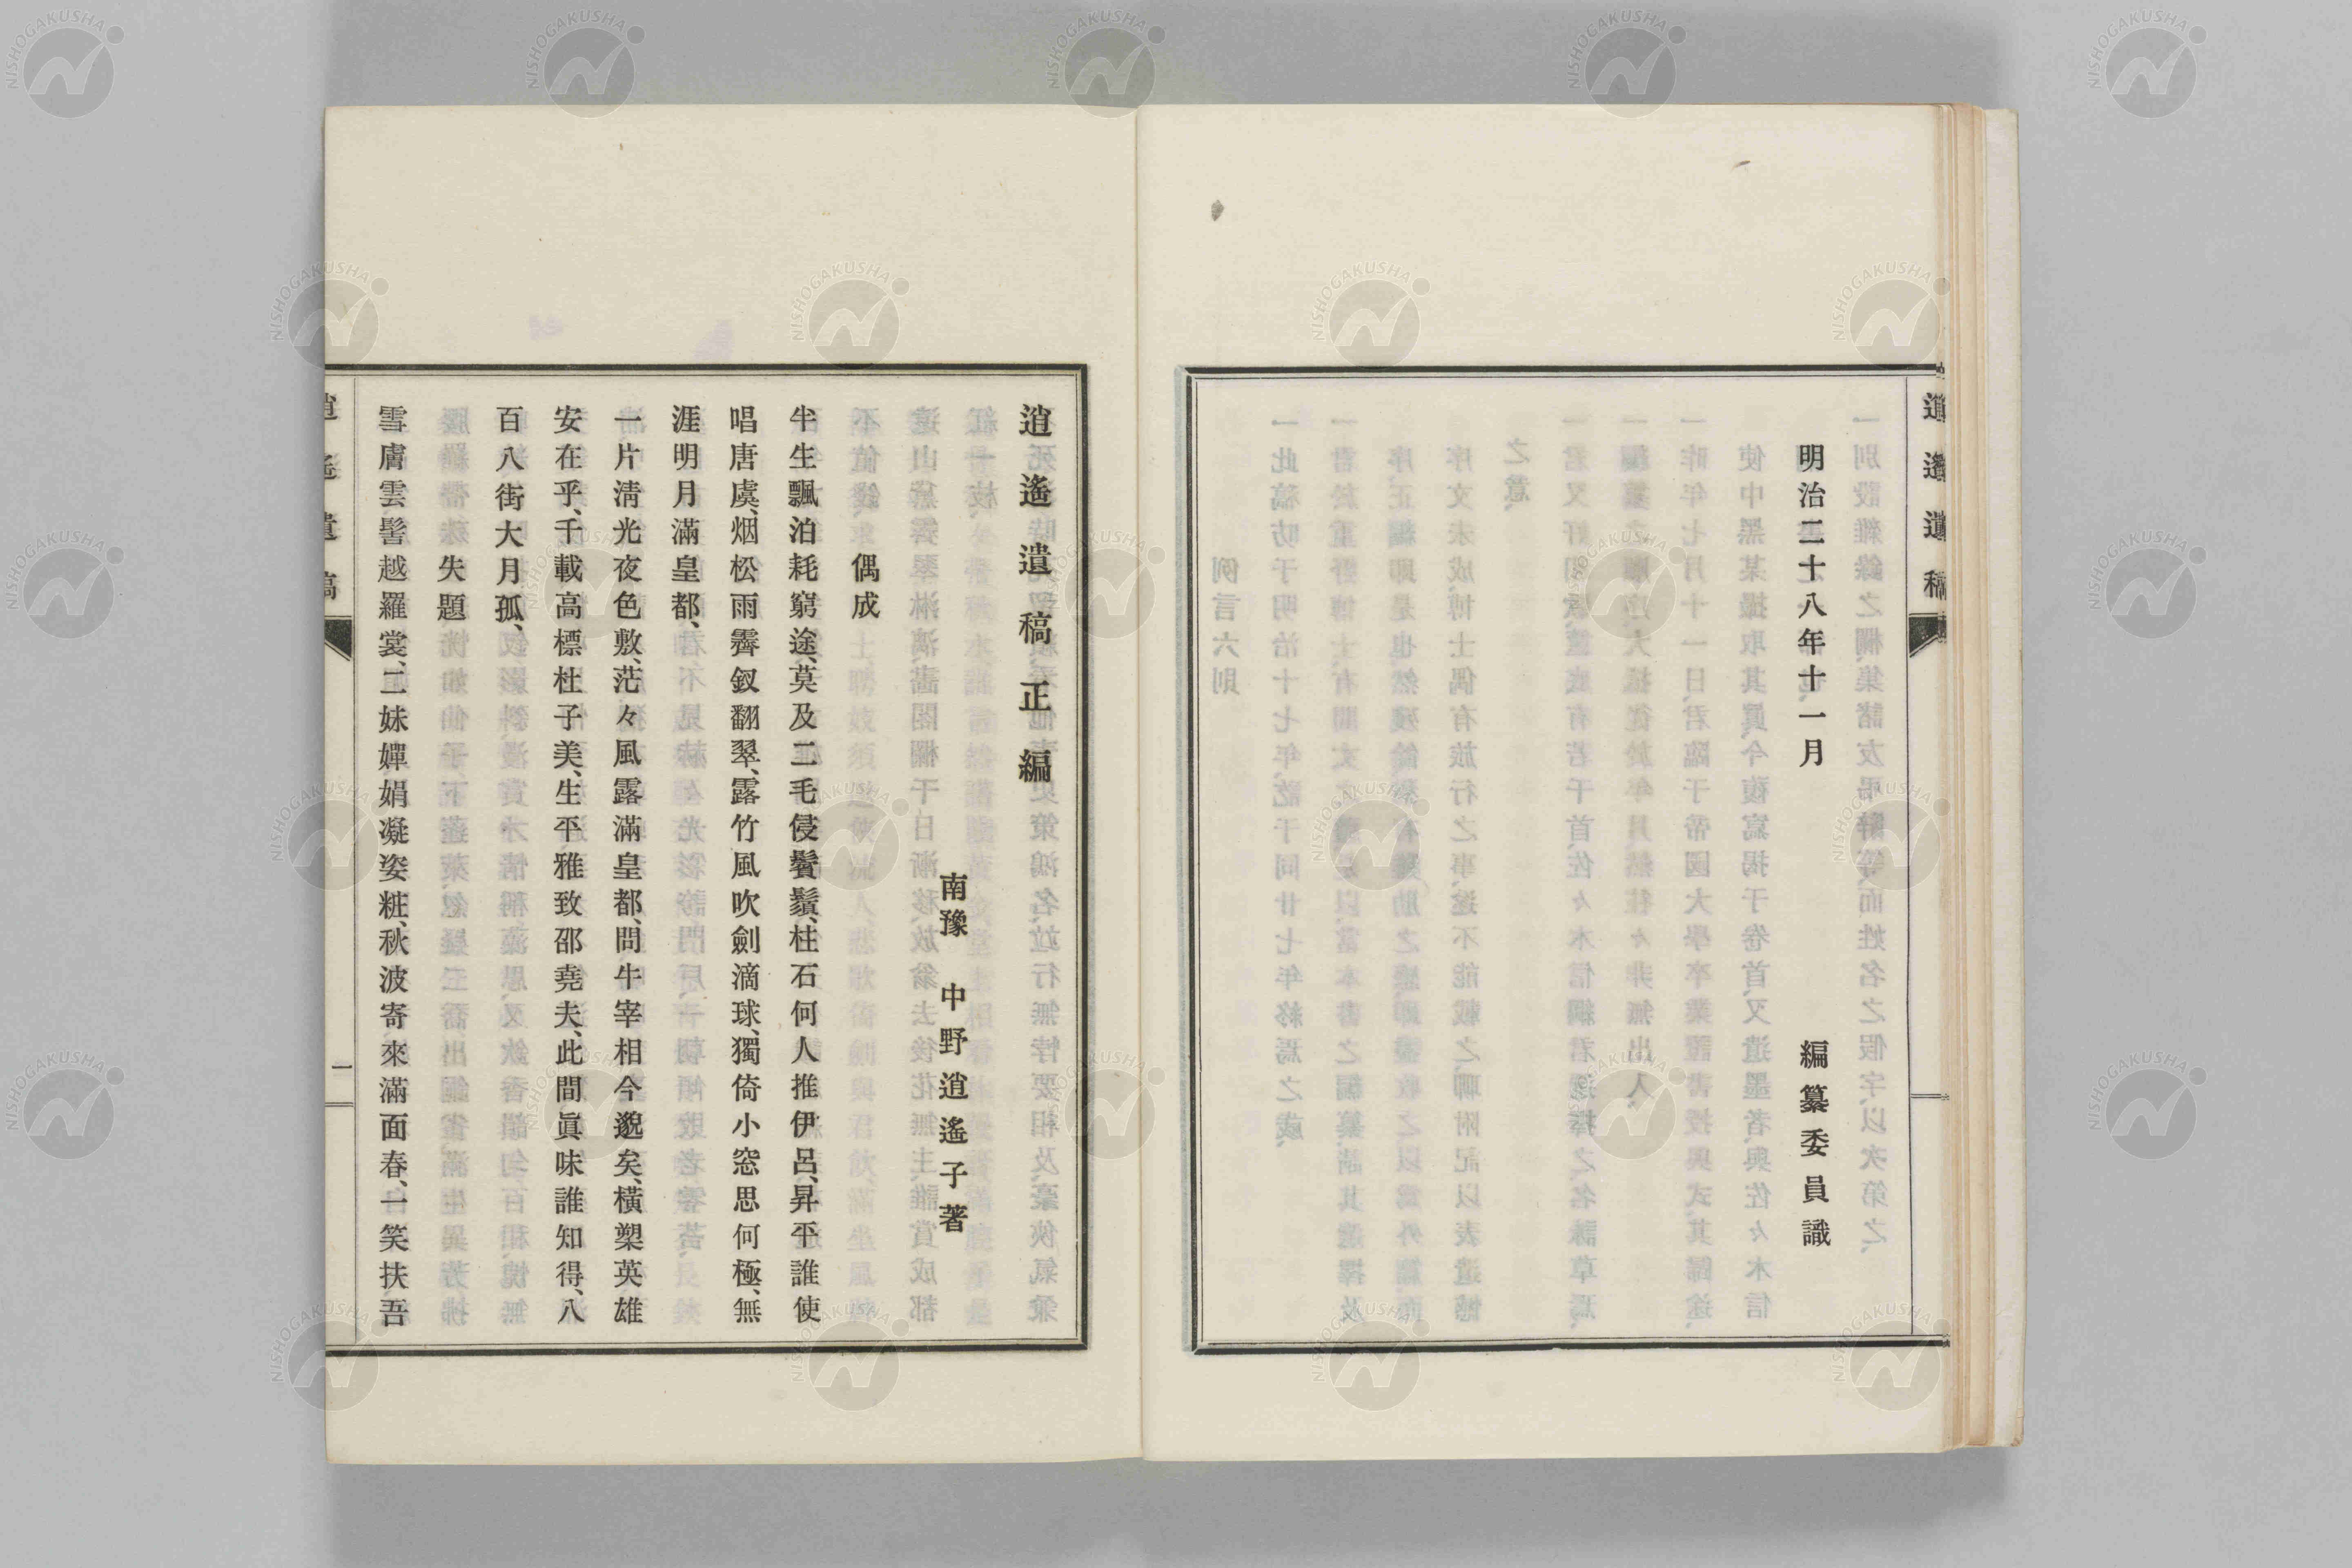 逍遙遺稿
明治二十八年十一月
編纂委員識
逍遙遺稿正編
南豫 中野逍遙子著
偶成
半生飄泊耗窮途、莫及二毛侵鬢鬚、柱石何人推伊呂、昇平誰使
唱唐虞、烟松雨霽釵翻翠、露竹風吹劍滴球、獨倚小窓思何極、無
涯明月滿皇都、
一片淸光夜色敷、茫々風露滿皇都、問牛宰相今邈矣、橫槊英雄
安在乎、千載高標杜子美、生平雅致邵堯夫、此間眞味誰知得、八
百八街大月孤、
失題
雪膚雲髻越羅裳、二妹嬋娟凝姿粧、秋波寄來滿面春、一笑扶吾
逍遙遺稿
一
NISHOGAKUSHA